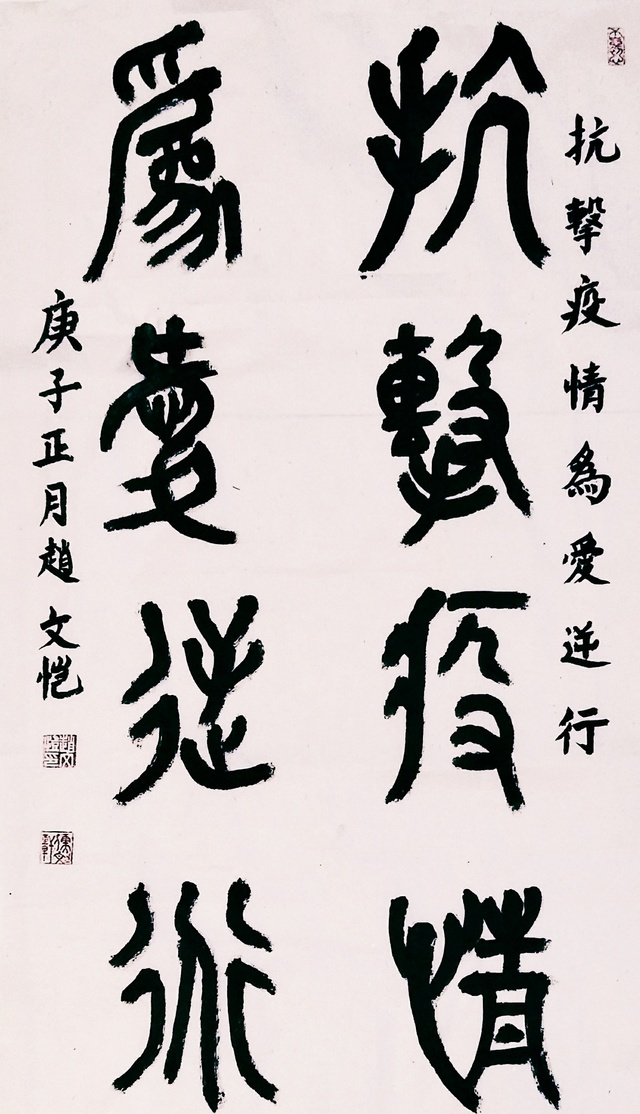 抗擊疫情爲愛逆行
抗擊疫情
爲愛逆行
庚子正月趙文愷